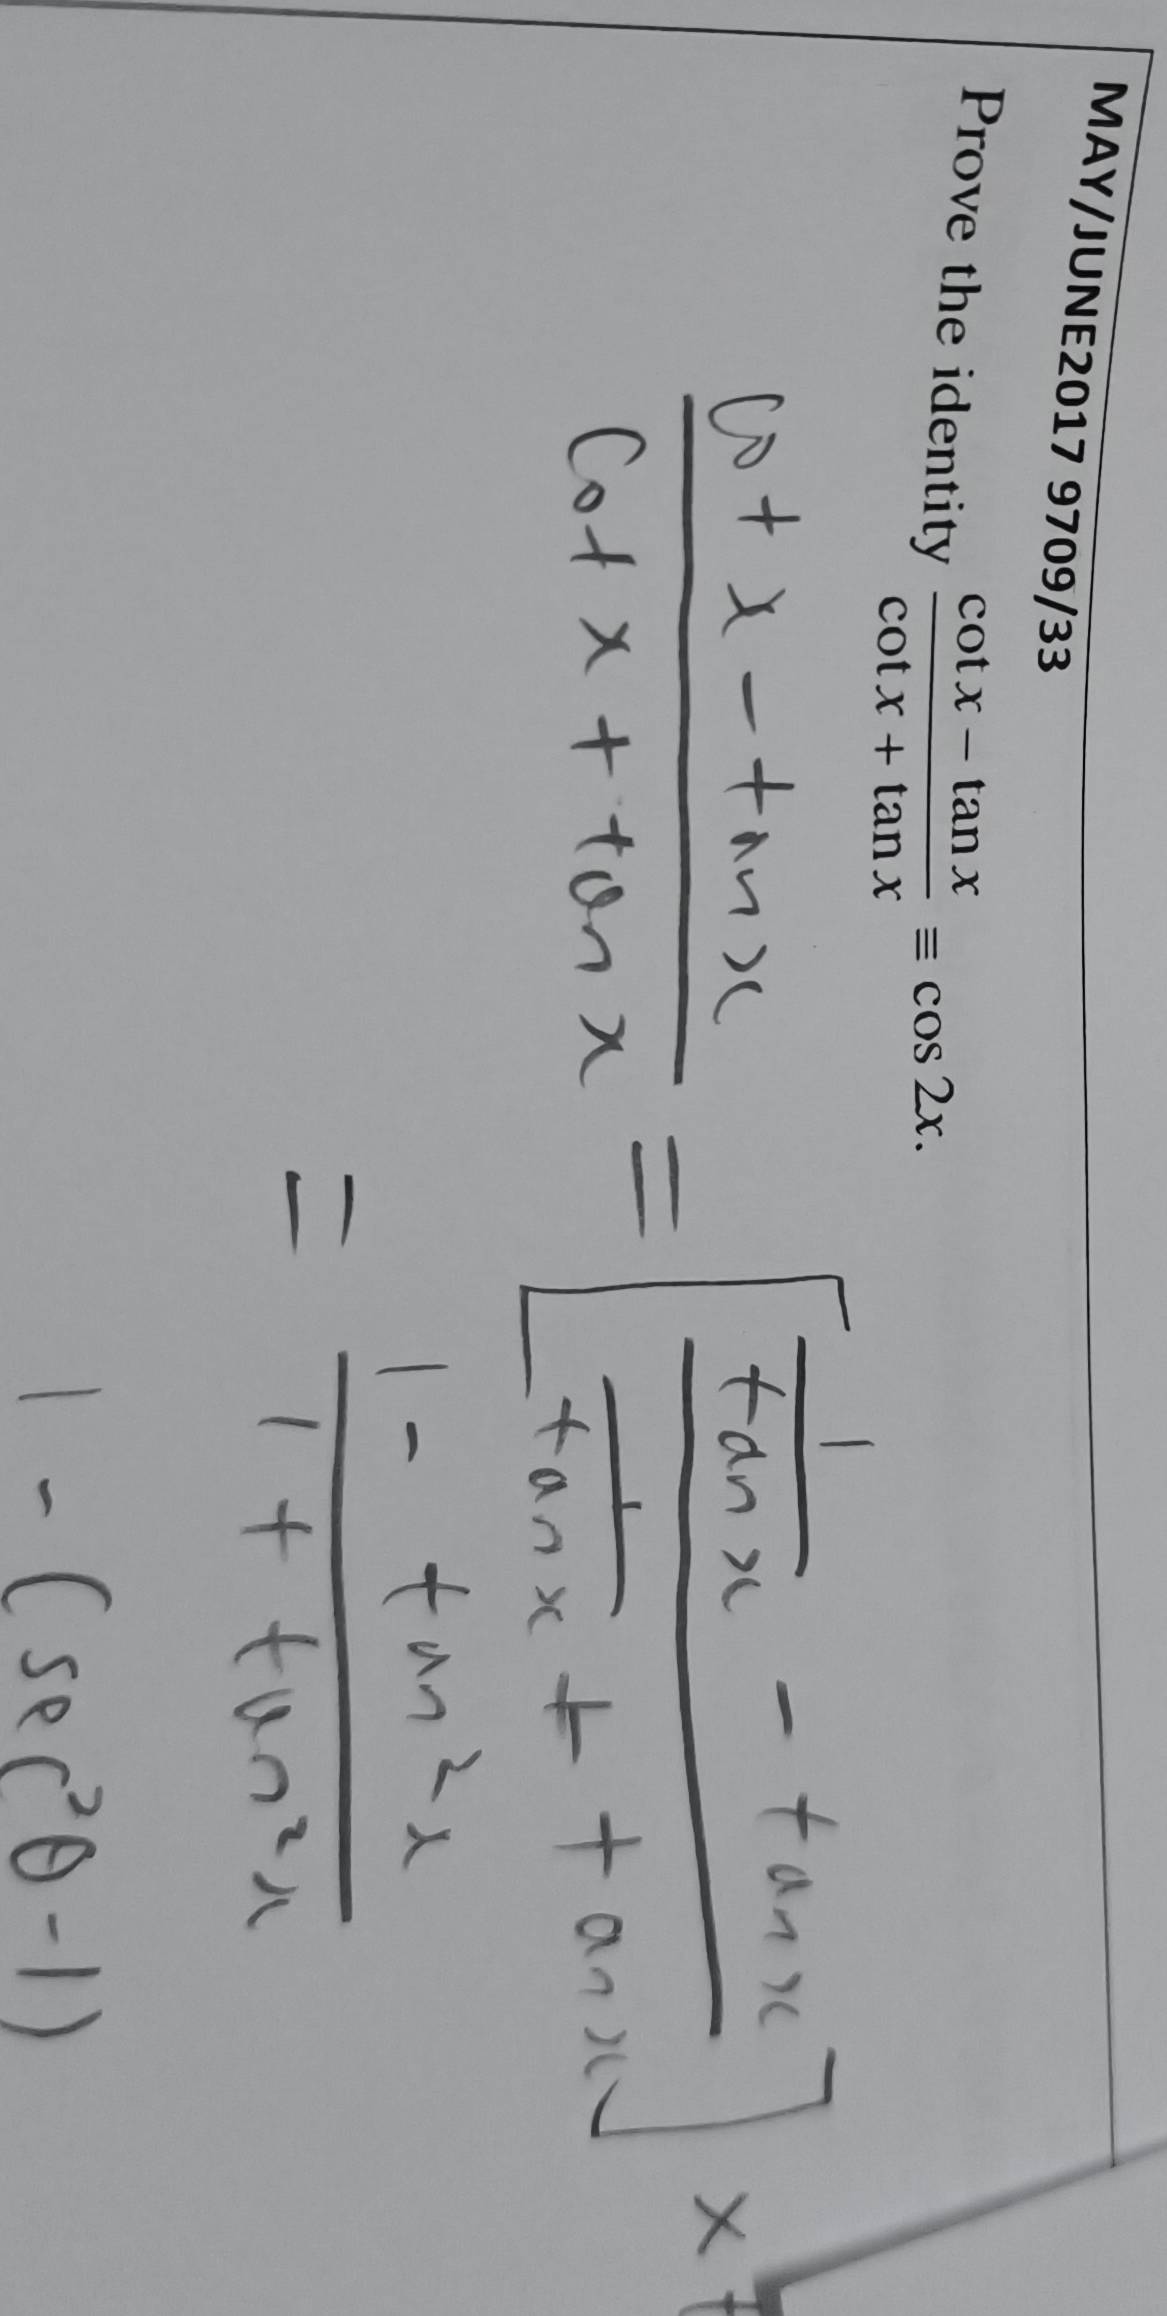 MAY/JUNE2017 9709/33
Prove the identity (cot x − tan x)/(cot x + tan x) ≡ cos 2x.
(Cot x - tan x)/(Cot x + tan x) = [(1/tan x - tan x)/(1/tan x + tan x)] ×
= (1 - tan²x)/(1 + tan²x)
1 - (sec²θ - 1)